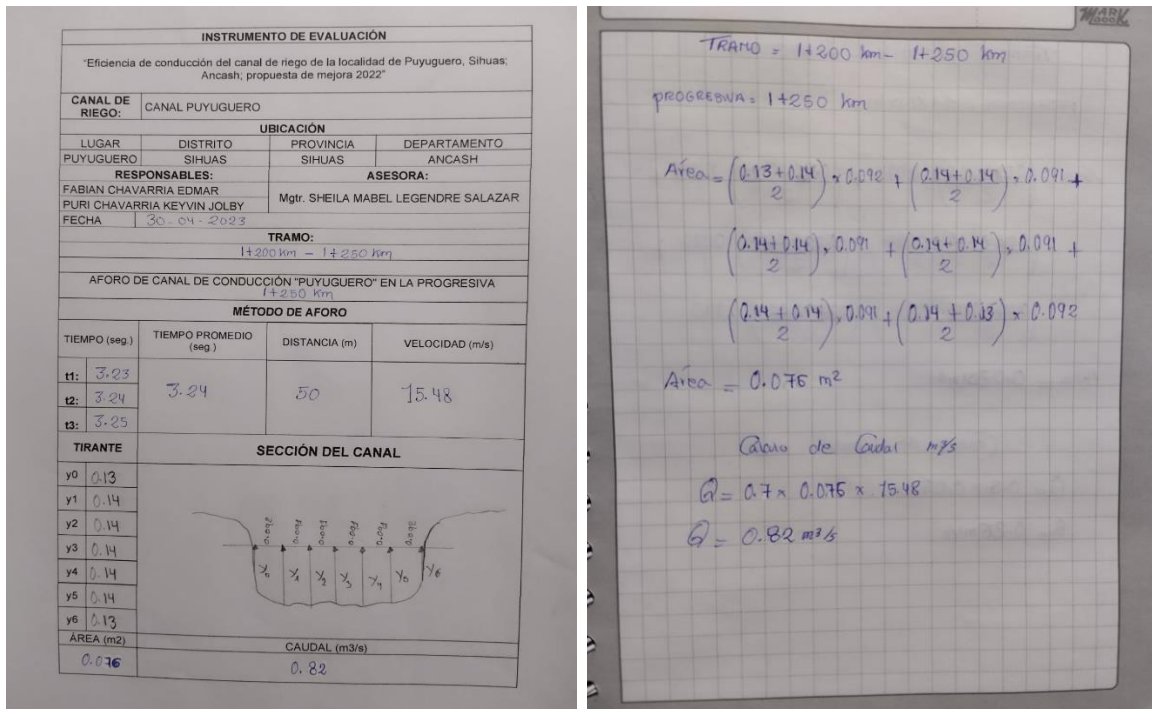 INSTRUMENTO DE EVALUACIÓN
"Eficiencia de conducción del canal de riego de la localidad de Puyuguero, Sihuas;
Ancash; propuesta de mejora 2022"
CANAL DE RIEGO: CANAL PUYUGUERO
UBICACIÓN
LUGAR DISTRITO PROVINCIA DEPARTAMENTO
PUYUGUERO SIHUAS SIHUAS ANCASH
RESPONSABLES: ASESORA:
FABIAN CHAVARRIA EDMAR
PURI CHAVARRIA KEYVIN JOLBY
Mgtr. SHEILA MABEL LEGENDRE SALAZAR
FECHA 30-04-2023
TRAMO:
1+200 km - 1+250 km
AFORO DE CANAL DE CONDUCCIÓN "PUYUGUERO" EN LA PROGRESIVA
1+250 Km
MÉTODO DE AFORO
TIEMPO (seg.) TIEMPO PROMEDIO (seg.) DISTANCIA (m) VELOCIDAD (m/s)
t1: 3.23
t2: 3.24
t3: 3.25
3.24 50 15.48
TIRANTE SECCIÓN DEL CANAL
y0 0.13
y1 0.14
y2 0.14
y3 0.14
y4 0.14
y5 0.14
y6 0.13
Y0 Y1 Y2 Y3 Y4 Y5 Y6
ÁREA (m2) CAUDAL (m3/s)
0.076 0.82
MARK
TRAMO = 1+200 km - 1+250 km
PROGRESIVA = 1+250 km
Área = (0.13+0.14 / 2) x 0.092 + (0.14+0.14 / 2) x 0.091 +
(0.14+0.14 / 2) x 0.091 + (0.14+0.14 / 2) x 0.091 +
(0.14+0.14 / 2) x 0.091 + (0.14+0.13 / 2) x 0.092
Área = 0.076 m2
Cálculo de Caudal m3/s
Q = 0.7 x 0.076 x 15.48
Q = 0.82 m3/s